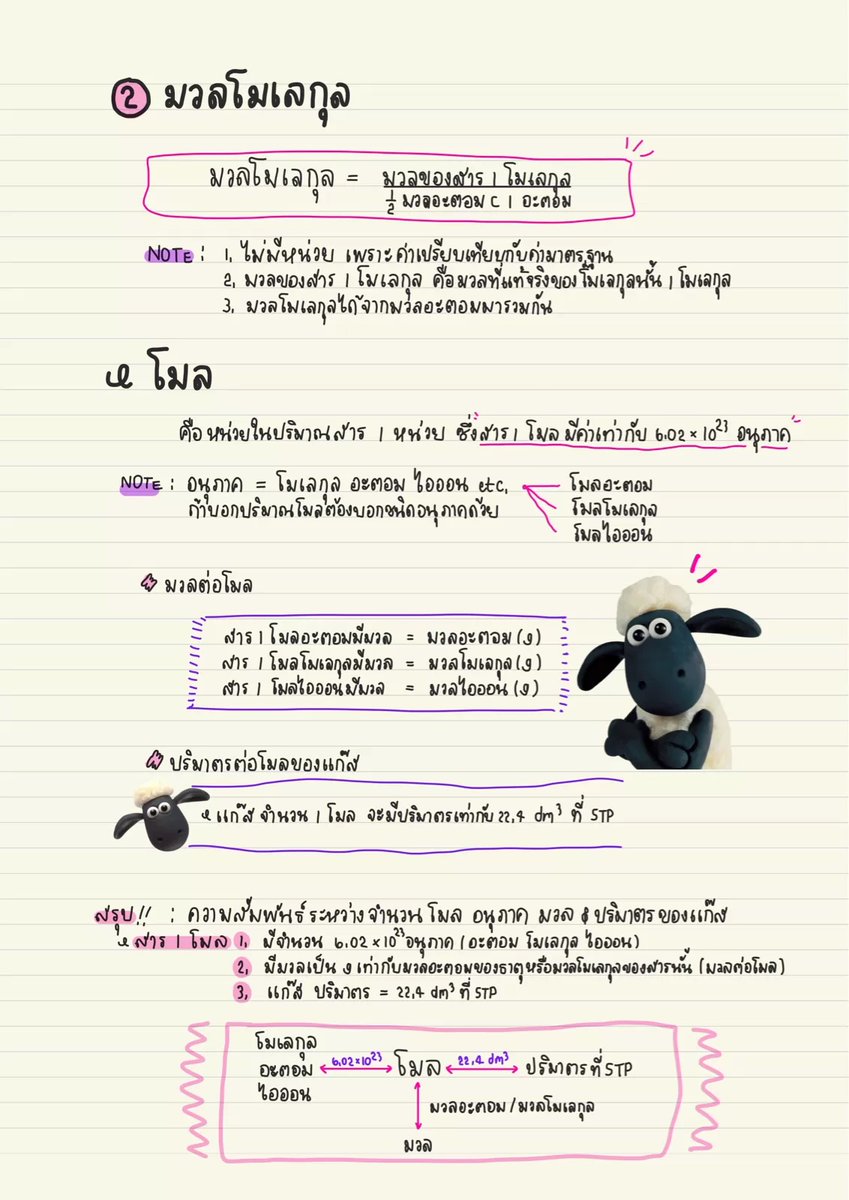 2 มวลโมเลกุล
มวลโมเลกุล = มวลของสาร 1 โมเลกุล
1/2 มวลอะตอม C 1 อะตอม
NOTE : 1. ไม่มีหน่วย เพราะค่าเปรียบเทียบกับค่ามาตรฐาน
2. มวลของสาร 1 โมเลกุล คือมวลที่แท้จริงของโมเลกุลนั้น 1 โมเลกุล
3. มวลโมเลกุลได้จากมวลอะตอมมารวมกัน
โมล
คือ หน่วยในปริมาณสาร 1 หน่วย ซึ่งสาร 1 โมล มีค่าเท่ากับ 6.02 × 10²³ อนุภาค
NOTE : อนุภาค = โมเลกุล อะตอม ไอออน etc.
ถ้าบอกปริมาณโมลต้องบอกชนิดอนุภาคด้วย
โมลอะตอม
โมลโมเลกุล
โมลไอออน
มวลต่อโมล
สาร 1 โมลอะตอมมีมวล = มวลอะตอม (g)
สาร 1 โมลโมเลกุลมีมวล = มวลโมเลกุล (g)
สาร 1 โมลไอออนมีมวล = มวลไอออน (g)
ปริมาตรต่อโมลของแก๊ส
แก๊ส จำนวน 1 โมล จะมีปริมาตรเท่ากับ 22.4 dm³ ที่ STP
สรุป!! : ความสัมพันธ์ระหว่างจำนวน โมล อนุภาค มวล & ปริมาตรของแก๊ส
สาร 1 โมล 1. มีจำนวน 6.02 × 10²³ อนุภาค (อะตอม โมเลกุล ไอออน)
2. มีมวลเป็น g เท่ากับมวลอะตอมของธาตุหรือมวลโมเลกุลของสารนั้น (มวลต่อโมล)
3. แก๊ส ปริมาตร = 22.4 dm³ ที่ STP
โมเลกุล
อะตอม 6.02×10²³ โมล 22.4 dm³ ปริมาตรที่ STP
ไอออน
มวลอะตอม / มวลโมเลกุล
มวล